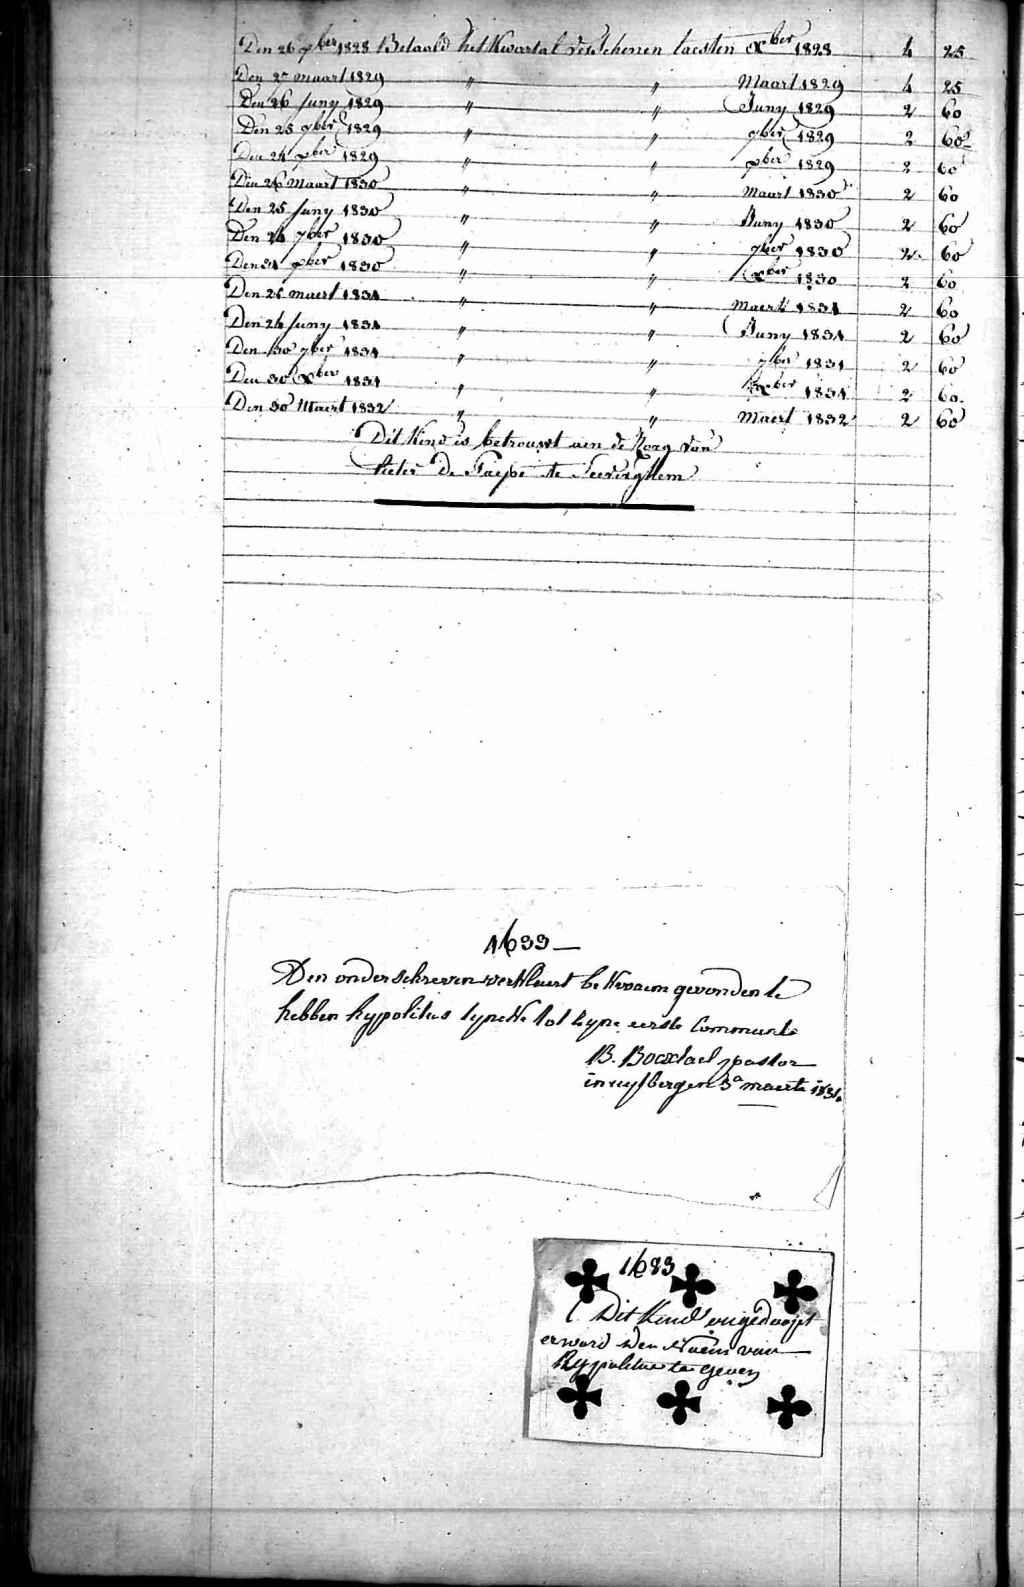 Den 26 xber 1828 Betaald het Kwartal verschenen laesten xber 1828 4 25
Den 27 maart 1829 " " Maart 1829 4 25
Den 26 Juny 1829 " " Juny 1829 2 60
Den 25 7ber 1829 " " 7ber 1829 2 60
Den 24 xber 1829 " " xber 1829 2 60
Den 26 Maart 1830 " " Maart 1830 2 60
Den 25 Juny 1830 " " Juny 1830 2 60
Den 24 7ber 1830 " " 7ber 1830 2 60
Den 24 xber 1830 " " xber 1830 2 60
Den 25 maert 1831 " " Maert 1831 2 60
Den 24 Juny 1831 " " Juny 1831 2 60
Den 30 7ber 1831 " " 7ber 1831 2 60
Den 30 xber 1831 " " xber 1831 2 60
Den 30 Maert 1832 " " Maert 1832 2 60
Dit Kind is betrouwt aen de Zorg van
Pieter De Paepe te Leeverghem
1633
Den onderschreven verklaert bekwaem gevonden te
hebben hypolitus tot zyne eerste Communie
B. Boextael pastor
in uytbergen 3a maerte 1831.
1633
Dit Kind ongedoopt
erword den Naem van
Hyppolitus te geven